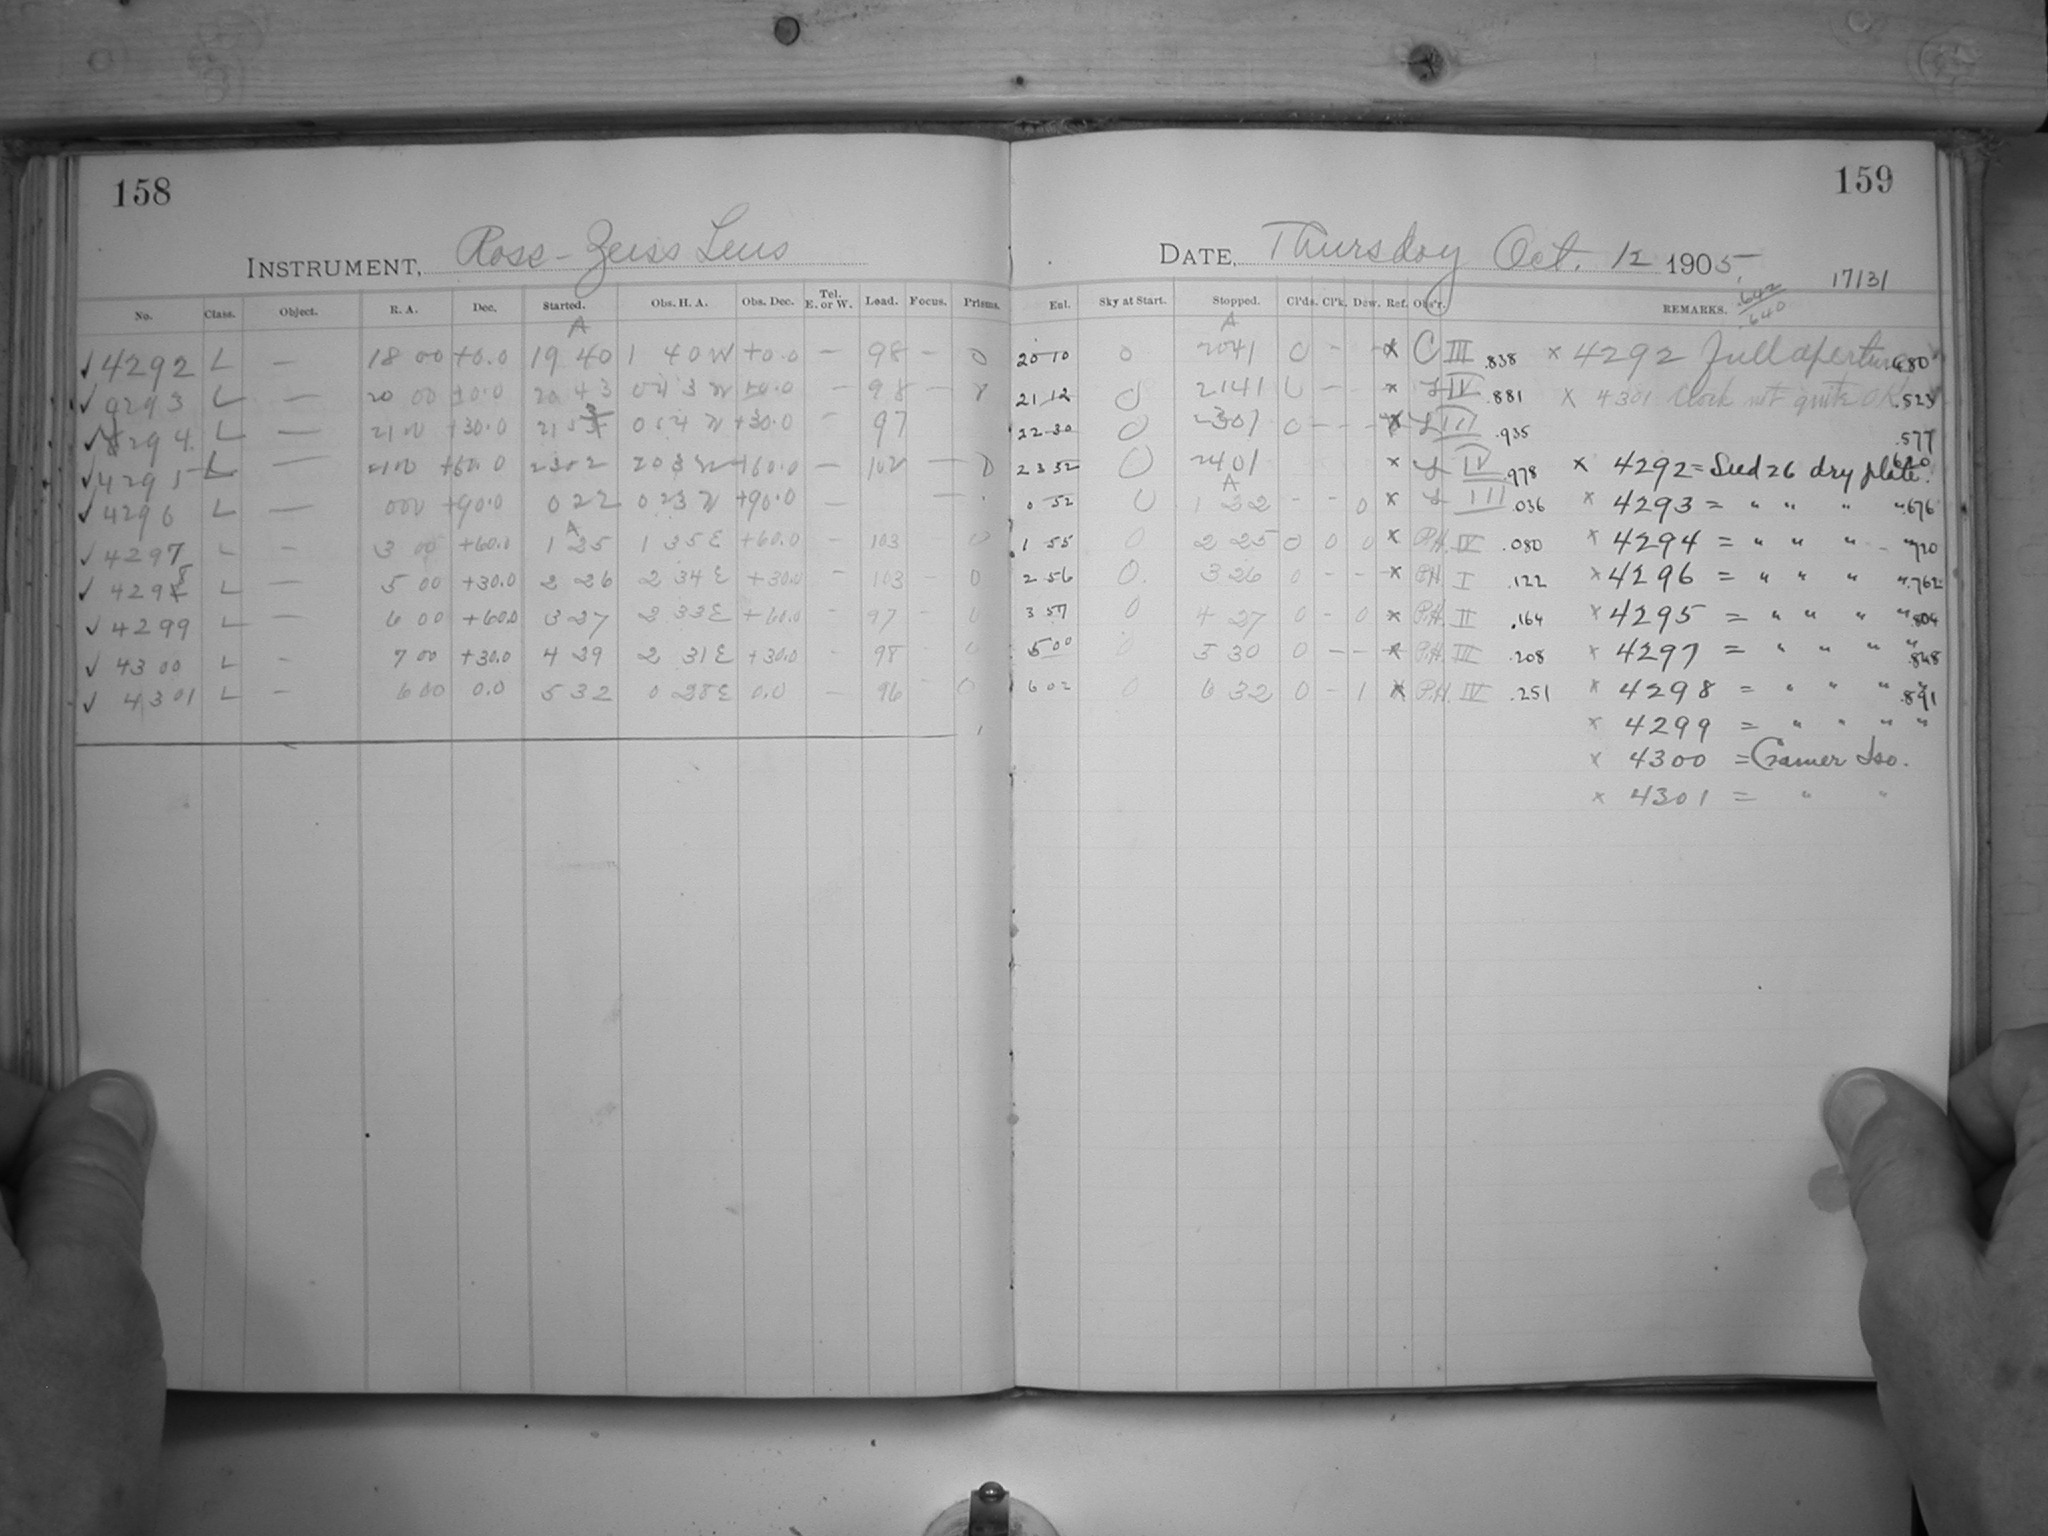 158
159
INSTRUMENT, Ross-Zeiss Lens
DATE, Thursday Oct. 12 1905.
17131
.642
.640
No. Class. Object. R. A. Dec. Started. Obs. H. A. Obs. Dec. Tel. E. or W. Load. Focus. Prisms. Ent. Sky at Start. Stopped. Cl'ds. Cl'k. Dew. Ref. Obs'r. REMARKS.
A A
✓ 4292 L — 18 00 +0.0 19 40 1 40 W +0.0 — 98 — 0 20 10 0 2041 0 — — x C III .838 x 4292 Full aperture .680
✓ 4293 L — 20 00 +0.0 20 43 0 43 W +0.0 — 98 — 21 12 0 2141 0 — — x IV .881 x 4301 Clock not quite OK .523
✓ 4294 L — 21 00 +30.0 21 53 0 54 W +30.0 — 97 22 30 0 2307 0 — — x III .935 .577
✓ 4295 L — 21 00 +60.0 2302 2 03 W +60.0 — 102 — 0 23 32 0 2401 x IV .978 x 4292 = Seed 26 dry plate. .620
A
✓ 4296 L — 0 00 +90.0 0 22 0 23 W +90.0 — — 0 52 0 1 22 — — 0 x III .036 x 4293 = " " " " .676
A
✓ 4297 L — 3 00 +60.0 1 25 1 35 E +60.0 — 103 0 1 55 0 2 25 0 0 0 x P.H. IV .080 x 4294 = " " " " .720
✓ 4298 L — 5 00 +30.0 2 26 2 34 E +30.0 — 103 — 0 2 56 0. 3 26 0 — — x P.H. I .122 x 4296 = " " " " .762
✓ 4299 L — 6 00 +60.0 3 27 2 33 E +60.0 — 97 — 0 3 57 0 4 27 0 — 0 x P.H. II .164 x 4295 = " " " " .804
✓ 4300 L — 7 00 +30.0 4 39 2 31 E +30.0 — 98 — 0 5 00 0 5 30 0 — — x P.H. III .208 x 4297 = " " " " .848
✓ 4301 L — 6 00 0.0 5 32 0 28 E 0.0 — 96 — 0 6 02 0 6 32 0 — 1 x P.H. IV .251 x 4298 = " " " " .891
x 4299 = " " " "
x 4300 = Cramer Iso.
x 4301 = " "